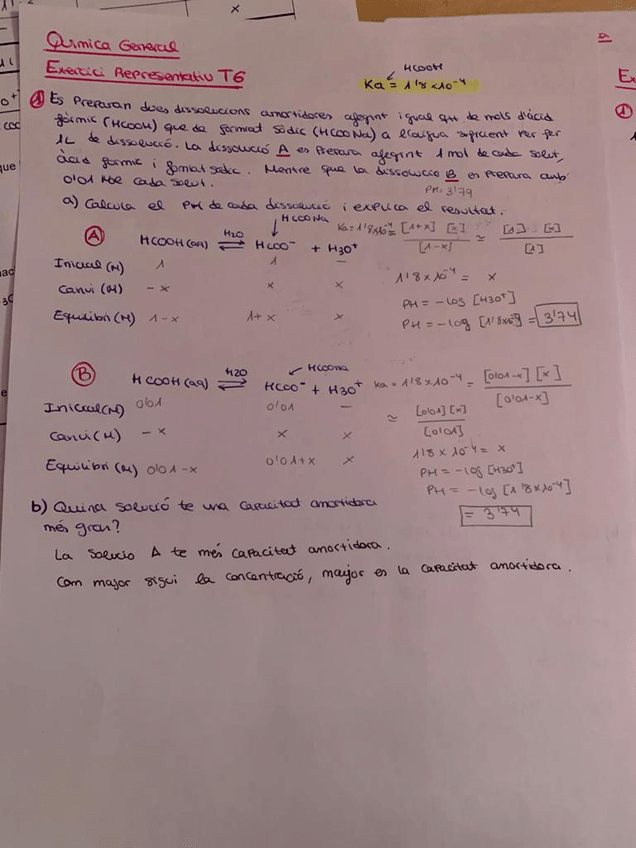 Química General
Exercici Representatiu T6
HCOOH
Ka = 1'8×10⁻⁴
① Es Preparan dues dissolucions amortidores afegint igual qut de mols d'àcid
fòrmic (HCOOH) que de formiat sòdic (HCOONa) a l'aigua suficient per fer
1L de dissolució. La dissolució A es prepara afegint 1 mol de cada solut,
àcid fòrmic i formiat sòdic. Mentre que la dissolució B es prepara amb
0'01 de cada solut.
PH = 3'79
a) Calcula el PH de cada dissolució i explica el resultat.
HCOONa
Ⓐ HCOOH(aq) ⇌ H2O HCOO⁻ + H3O⁺ Ka = 1'8×10⁻⁴ = [1+x] [x] / [1-x] ≃ [1] [x] / [1]
Inicial (M) 1 1 —
Canvi (M) -x x x 1'8×10⁻⁴ = x
PH = -log [H3O⁺]
Equilibri (M) 1-x 1+x x PH = -log [1'8×10⁻⁴] = 3'74
HCOONa
Ⓑ HCOOH(aq) ⇌ H2O HCOO⁻ + H3O⁺ Ka = 1'8×10⁻⁴ = [0'01-x] [x] / [0'01-x]
Inicial(M) 0'01 0'01 — ≃ [0'01] [x] / [0'01]
Canvi (M) -x x x
1'8×10⁻⁴ = x
Equilibri (M) 0'01-x 0'01+x x PH = -log [H3O⁺]
PH = -log [1'8×10⁻⁴]
= 3'74
b) Quina solució te una capacitat amortidora
més gran?
La solucio A te més capacitat amortidora.
Com major sigui la concentració, major es la capacitat amortidora.
a
Ex
①
x
que